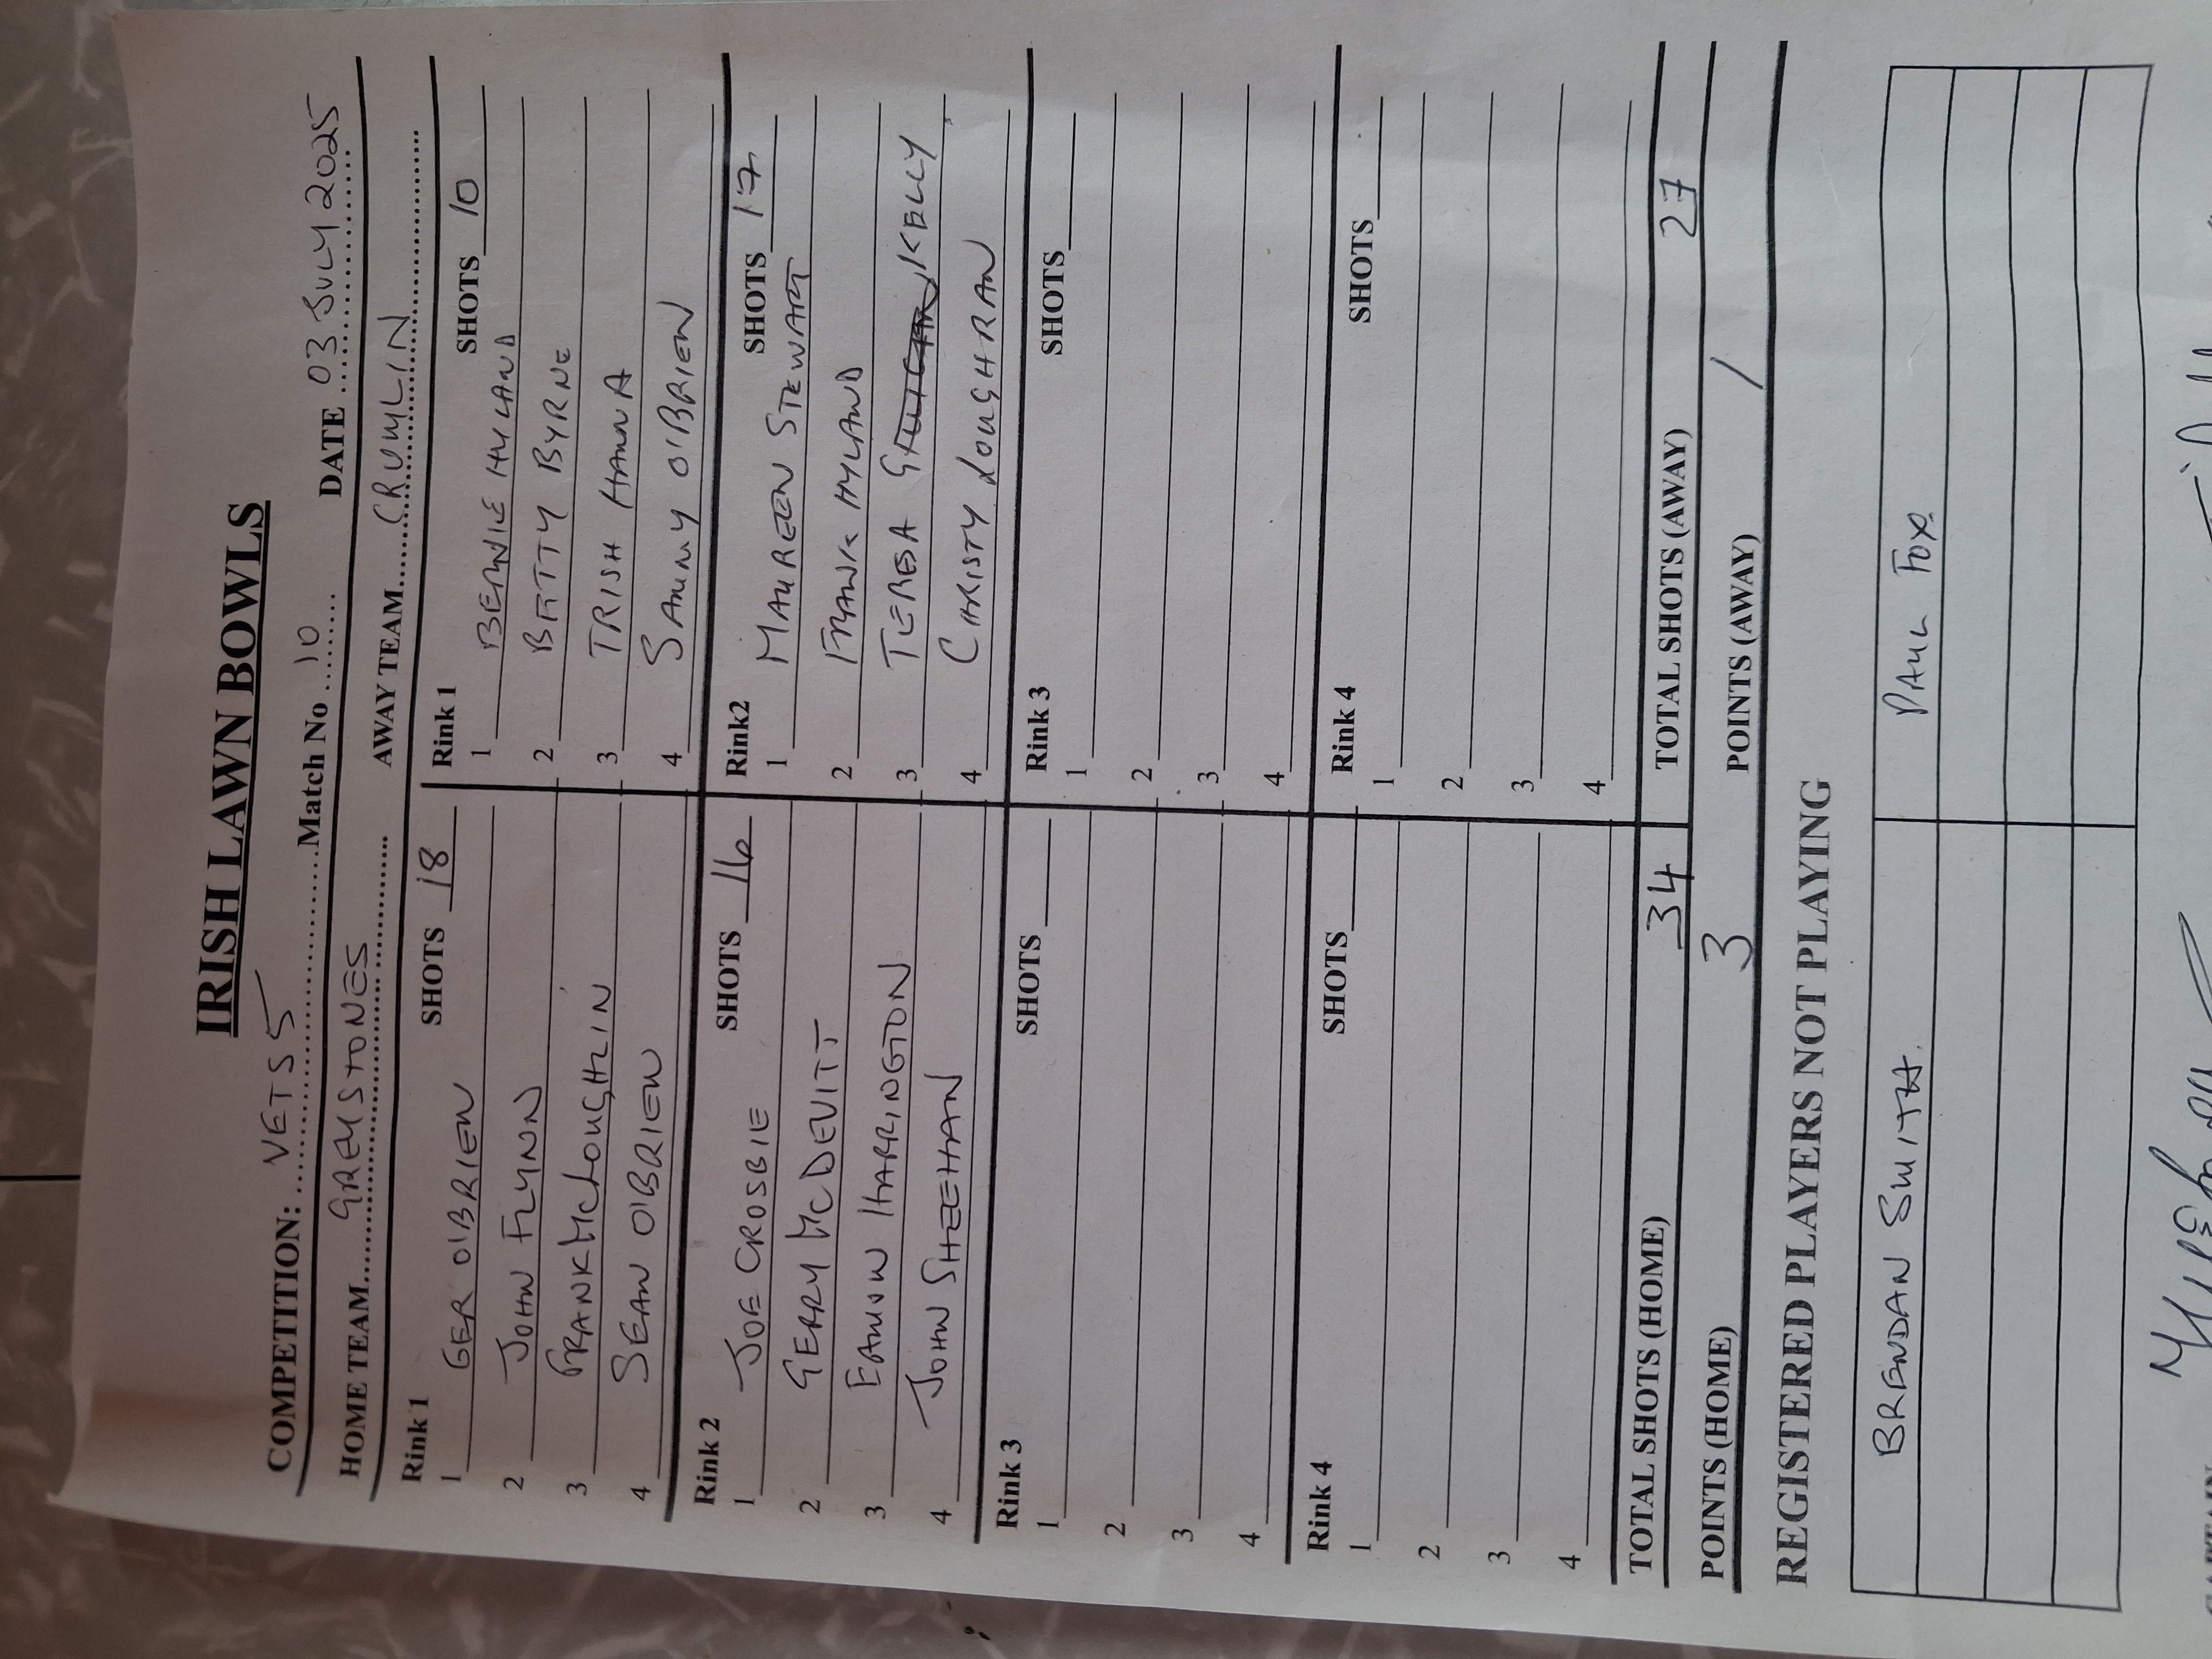 IRISH LAWN BOWLS
COMPETITION: VETS 5 Match No 10 DATE 03 JULY 2025
HOME TEAM GREYSTONES AWAY TEAM CRUMLIN
Rink 1 SHOTS 18 Rink 1 SHOTS 10
1 GER O'BRIEN 1 BERNIE HYLAND
2 JOHN FLYNN 2 BETTY BYRNE
3 FRANK McLOUGHLIN 3 TRISH HANNA
4 SEAN O'BRIEN 4 SAMMY O'BRIEN
Rink 2 SHOTS 16 Rink2 SHOTS 17
1 JOE CROSBIE 1 MAUREEN STEWART
2 GERRY McDEVITT 2 FRANK HYLAND
3 EAMON HARRINGTON 3 TERESA KELLY
4 JOHN SHEEHAN 4 CHRISTY LOUGHRAN
Rink 3 SHOTS Rink 3 SHOTS
1 1
2 2
3 3
4 4
Rink 4 SHOTS Rink 4 SHOTS
1 1
2 2
3 3
4 4
TOTAL SHOTS (HOME) 34 TOTAL SHOTS (AWAY) 27
POINTS (HOME) 3 POINTS (AWAY) 1
REGISTERED PLAYERS NOT PLAYING
BRENDAN SMITH. PAUL FOX